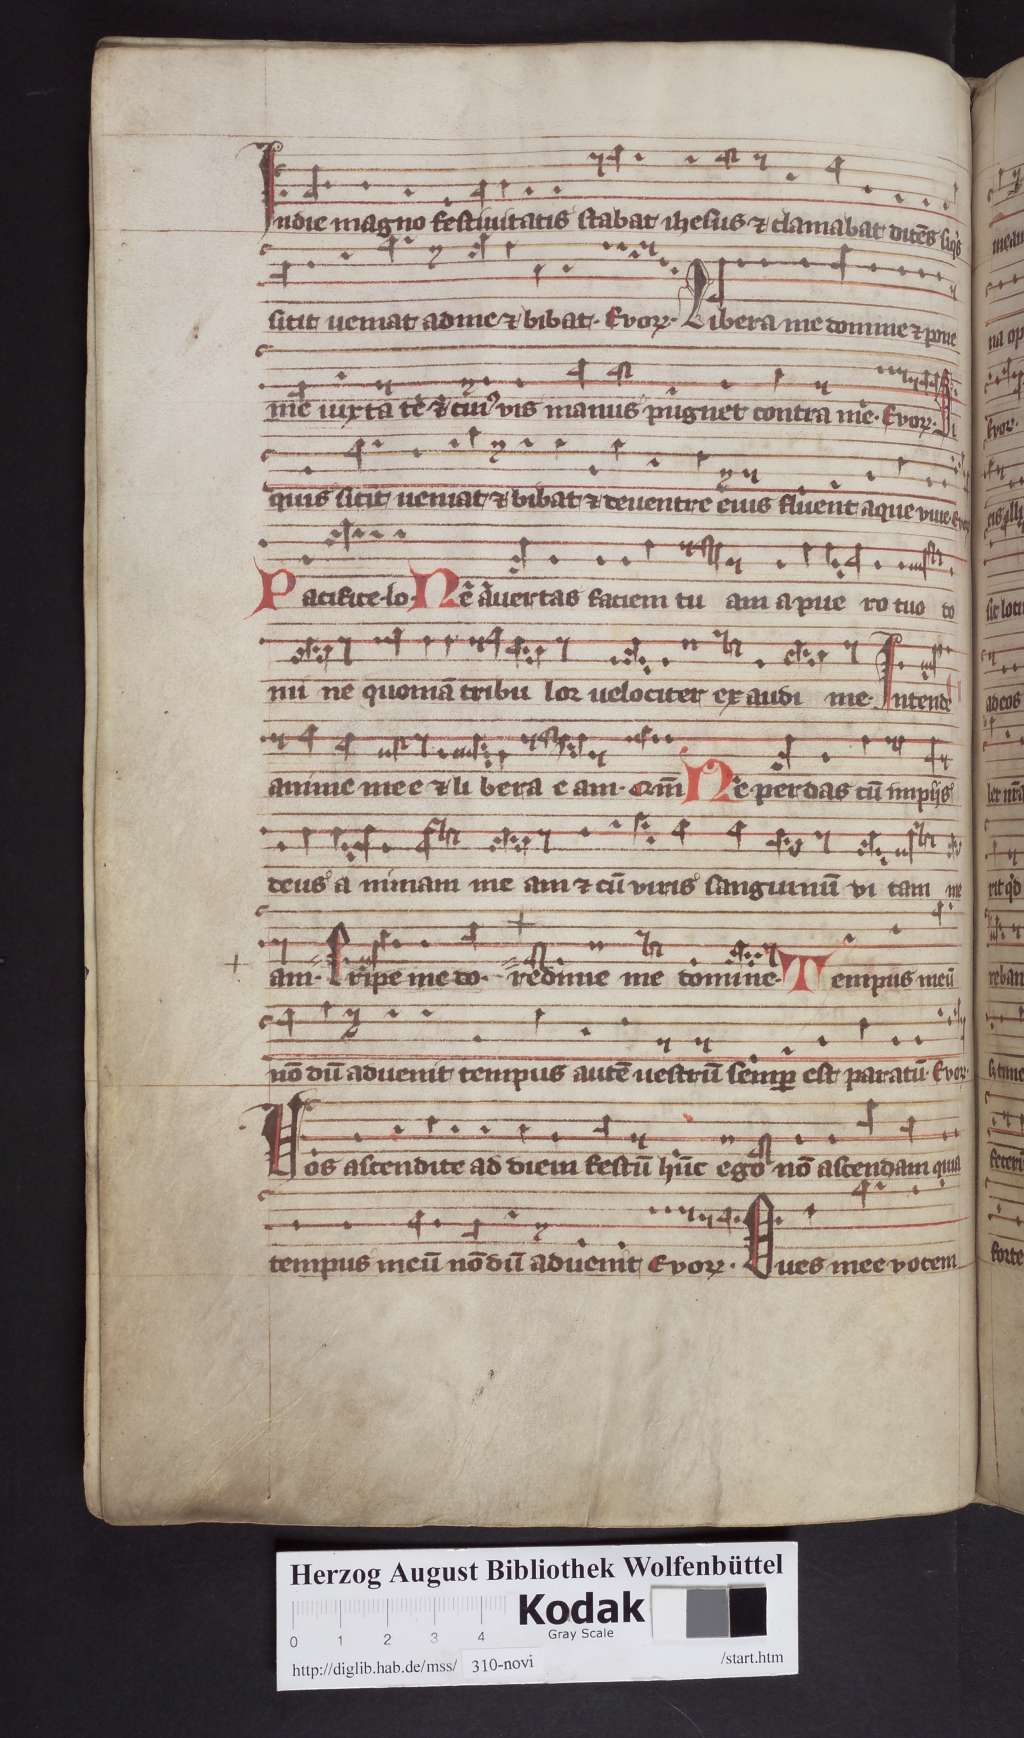 Indie magno festiuitatis stabat ihesus ⁊ clamabat dicēs siq̇s
sitit ueniat adme ⁊ bibat. Evoꝝ. Libera me domine ⁊ pone
me iuxta te ⁊ cuiꝰvis manus pugnet contra me. Evoꝝ. Si
quis sitit ueniat ⁊ bibat ⁊ deuentre eius fluent aque viue Evoꝝ
Pacifice. lo. Ne auertas faciem tu am a pue ro tuo do
mi ne quoniā tribu lor uelociter ex audi me. Intende
anime mee ⁊ li bera e am. Qm̄ Ne perdas cū impijs
deus a nimam me am ⁊ cū viris sanguinū vi tam me
am. Eripe me do. redime me domine. Tempus meū
nō dū aduenit tempus autē uestrū semꝑ est paratū. Evoꝝ.
Uos ascendite ad diem festū hūc ego nō ascendam quia
tempus meū nōdū aduenit Evoꝝ. Oues mee vocem
meam
na op
Evoꝝ.
sic locu
ad eos
reban
forte
Herzog August Bibliothek Wolfenbüttel
Kodak
Gray Scale
0 1 2 3 4
http://diglib.hab.de/mss/ 310-novi /start.htm